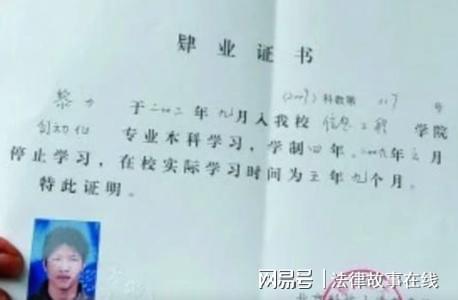 肄业证书
(2007)科教第 117 号
黎力 于二〇〇二年九月入我校信息工程 学院
自动化 专业本科学习，学制四年。二〇〇六年 月
停止学习，在校实际学习时间为 年九个月。
特此证明。
北京
网易号 | 法律故事在线